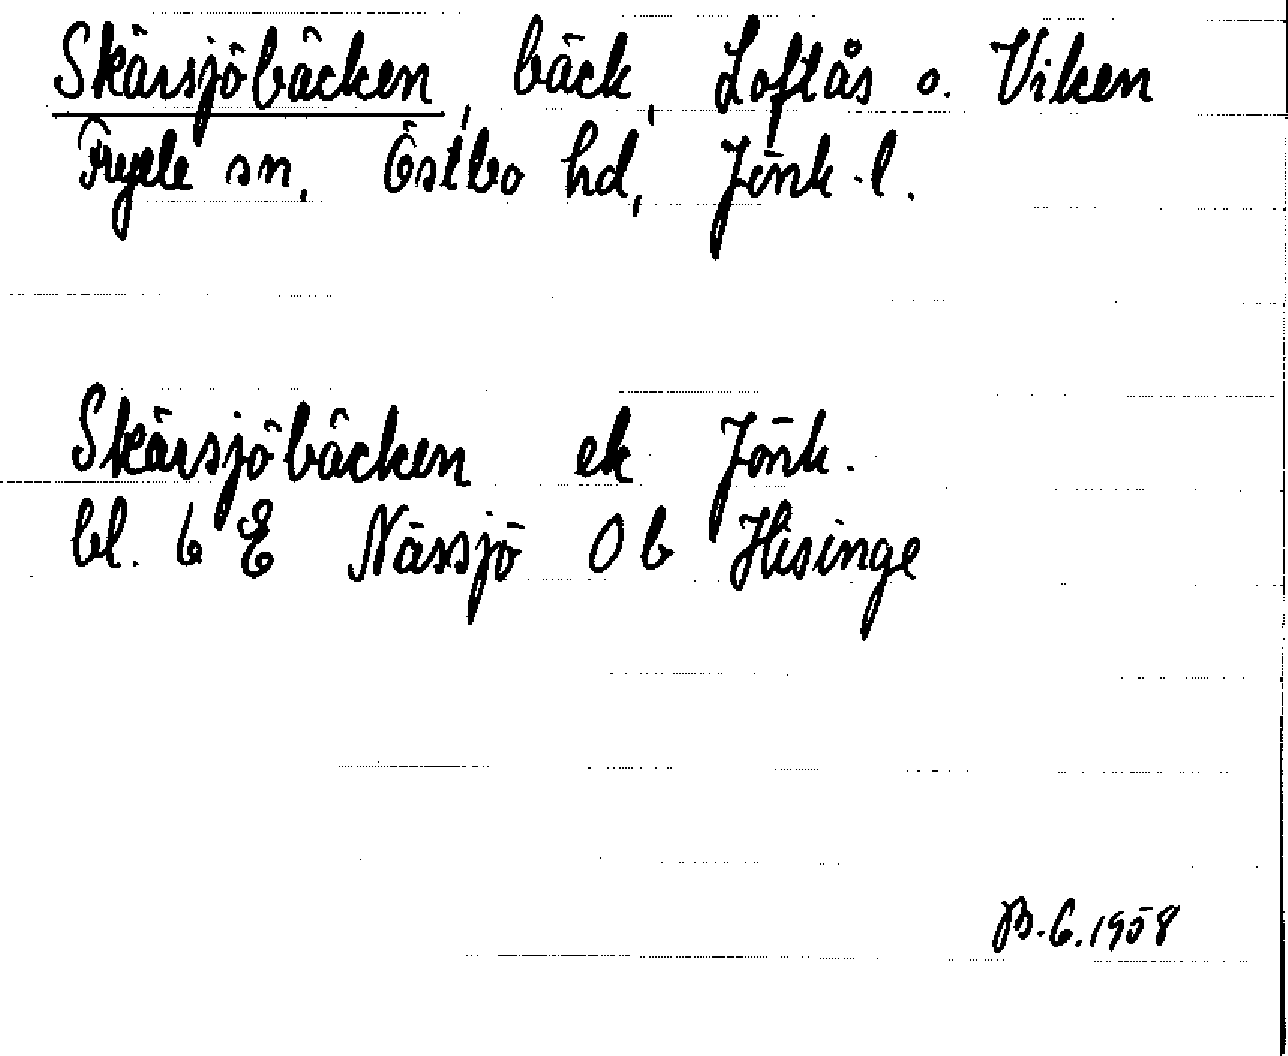 Skärsjöbäcken, bäck, Loftås o. Viken
Fryele sn, Östbo hd, Jönk. l.
Skärsjöbäcken ek Jönk.
bl. 6 E Nässjö 0 b Hisinge
B.G.1958